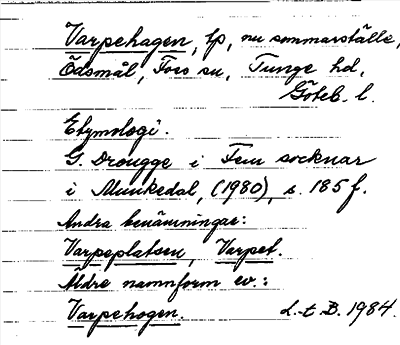 Varpehagen, lp, nu sommarställe,
Ödsmål, Foss sn, Tunge hd,
Göteb. l.
Etymologi.
G. Drougge i Fem socknar
i Munkedal, (1980), s. 185 f.
Andra benämningar:
Varpeplatsen, Varpet.
Äldre namnform ev.:
Varpehogen. L-t B. 1984.